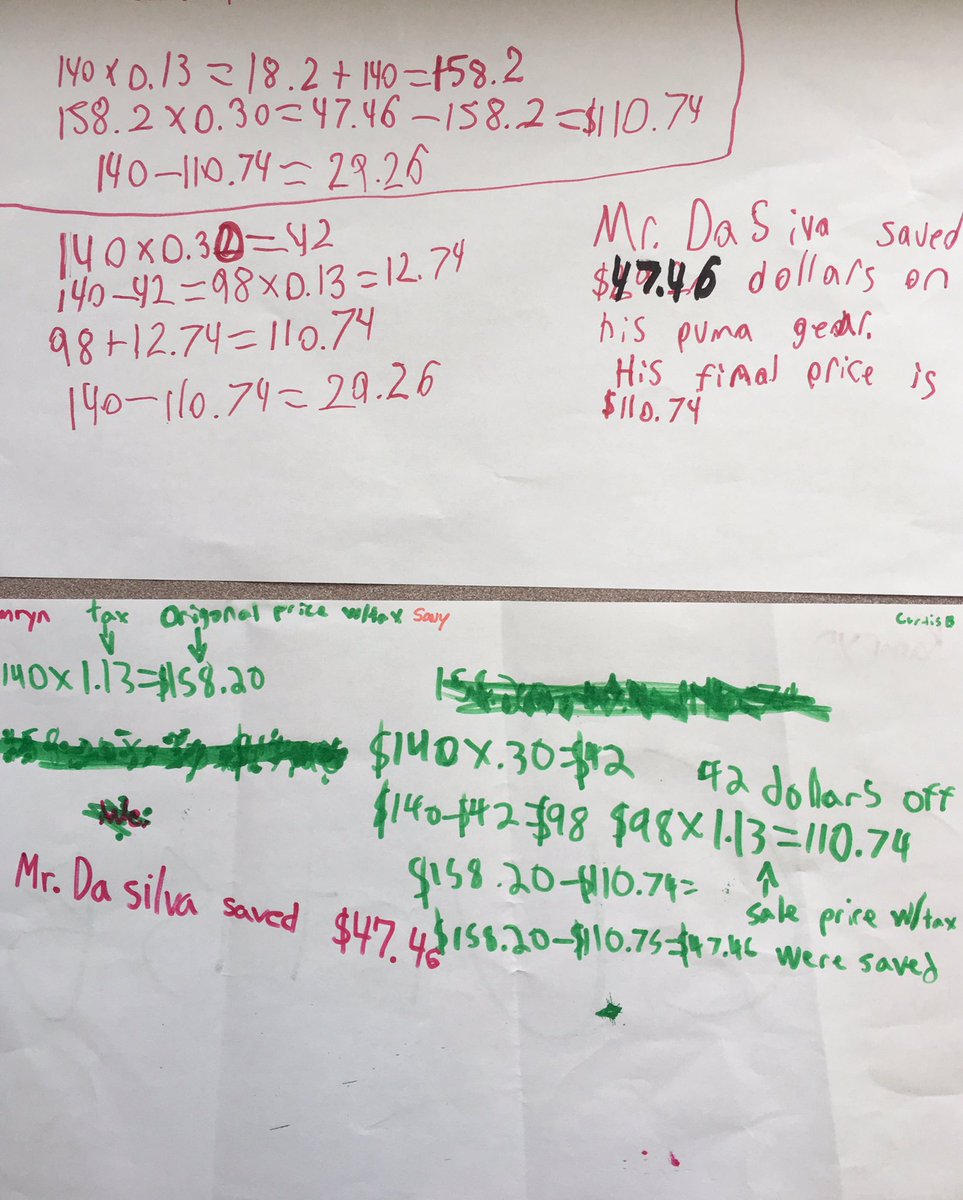 140 x 0.13 = 18.2 + 140 = 158.2
158.2 x 0.30 = 47.46 - 158.2 = $110.74
140 - 110.74 = 29.26
140 x 0.30 = 42
140 - 42 = 98 x 0.13 = 12.74
98 + 12.74 = 110.74
140 - 110.74 = 29.26
Mr. DaSiva saved
$47.46 dollars on
his puma gear.
His final price is
$110.74
mryn tax Origonal price w/tax
Curtis B
140 x 1.13 = $158.20
$140 x .30 = $42
42 dollars off
$140 - $42 = $98 $98 x 1.13 = 110.74
$158.20 - $110.74 =
sale price w/tax
$158.20 - $110.75 = $47.46 were saved
We:
Mr. Da silva saved $47.46